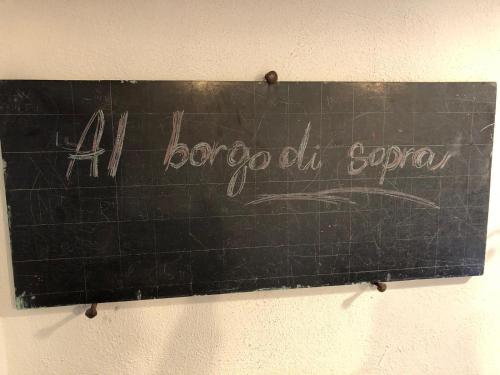 Al borgo di sopra